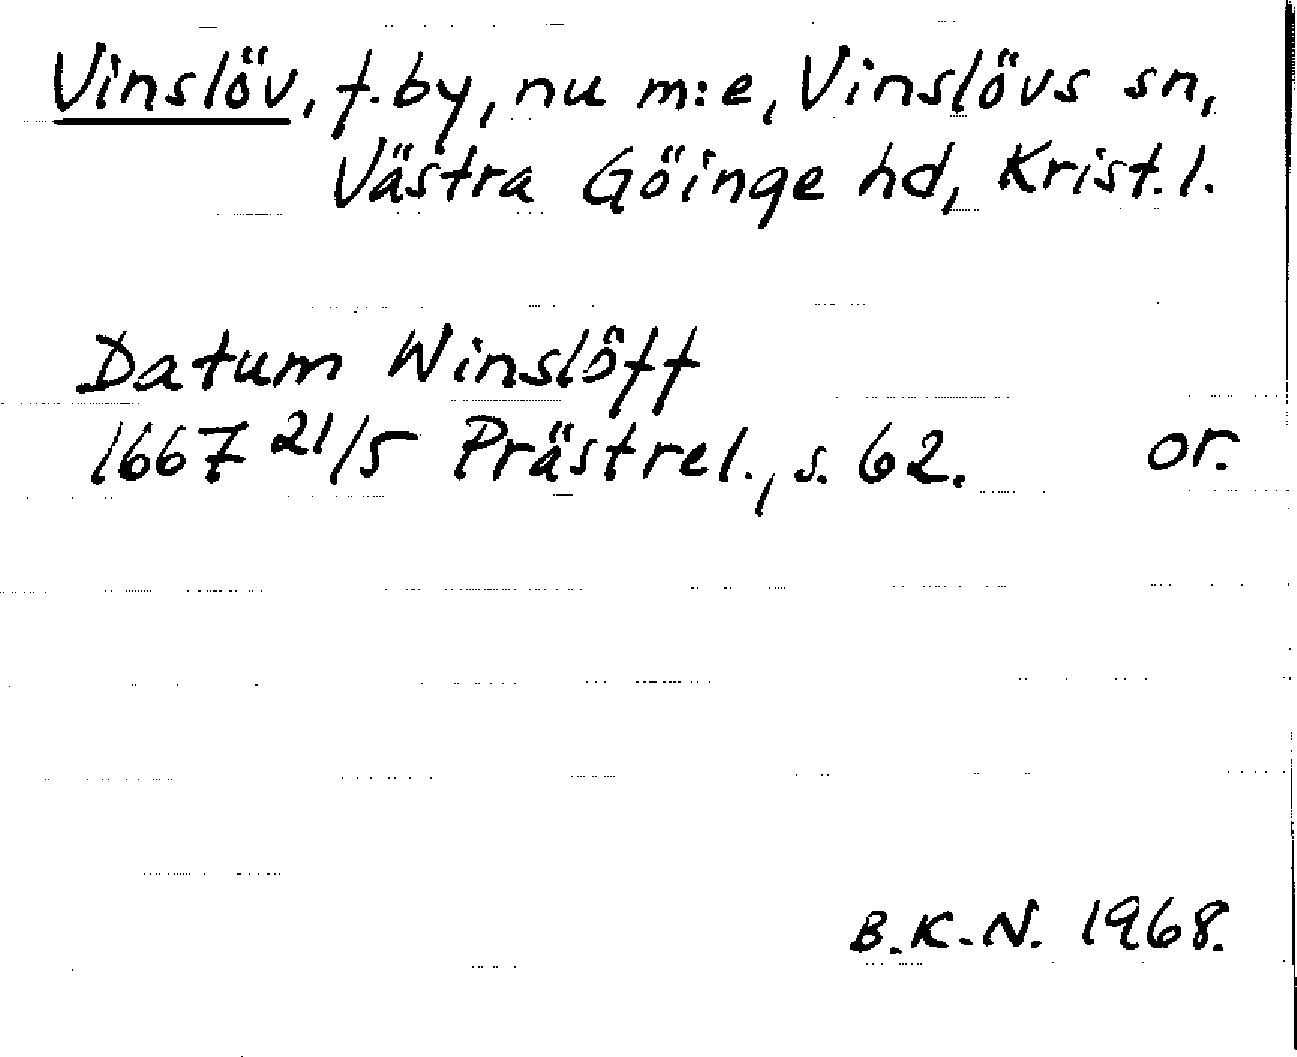 Vinslöv, f.by, nu m:e, Vinslövs sn,
Västra Göinge hd, Krist.l.
Datum Winslöff
1667 21/5 Prästrel., s. 62. or.
B.K-N. 1968.